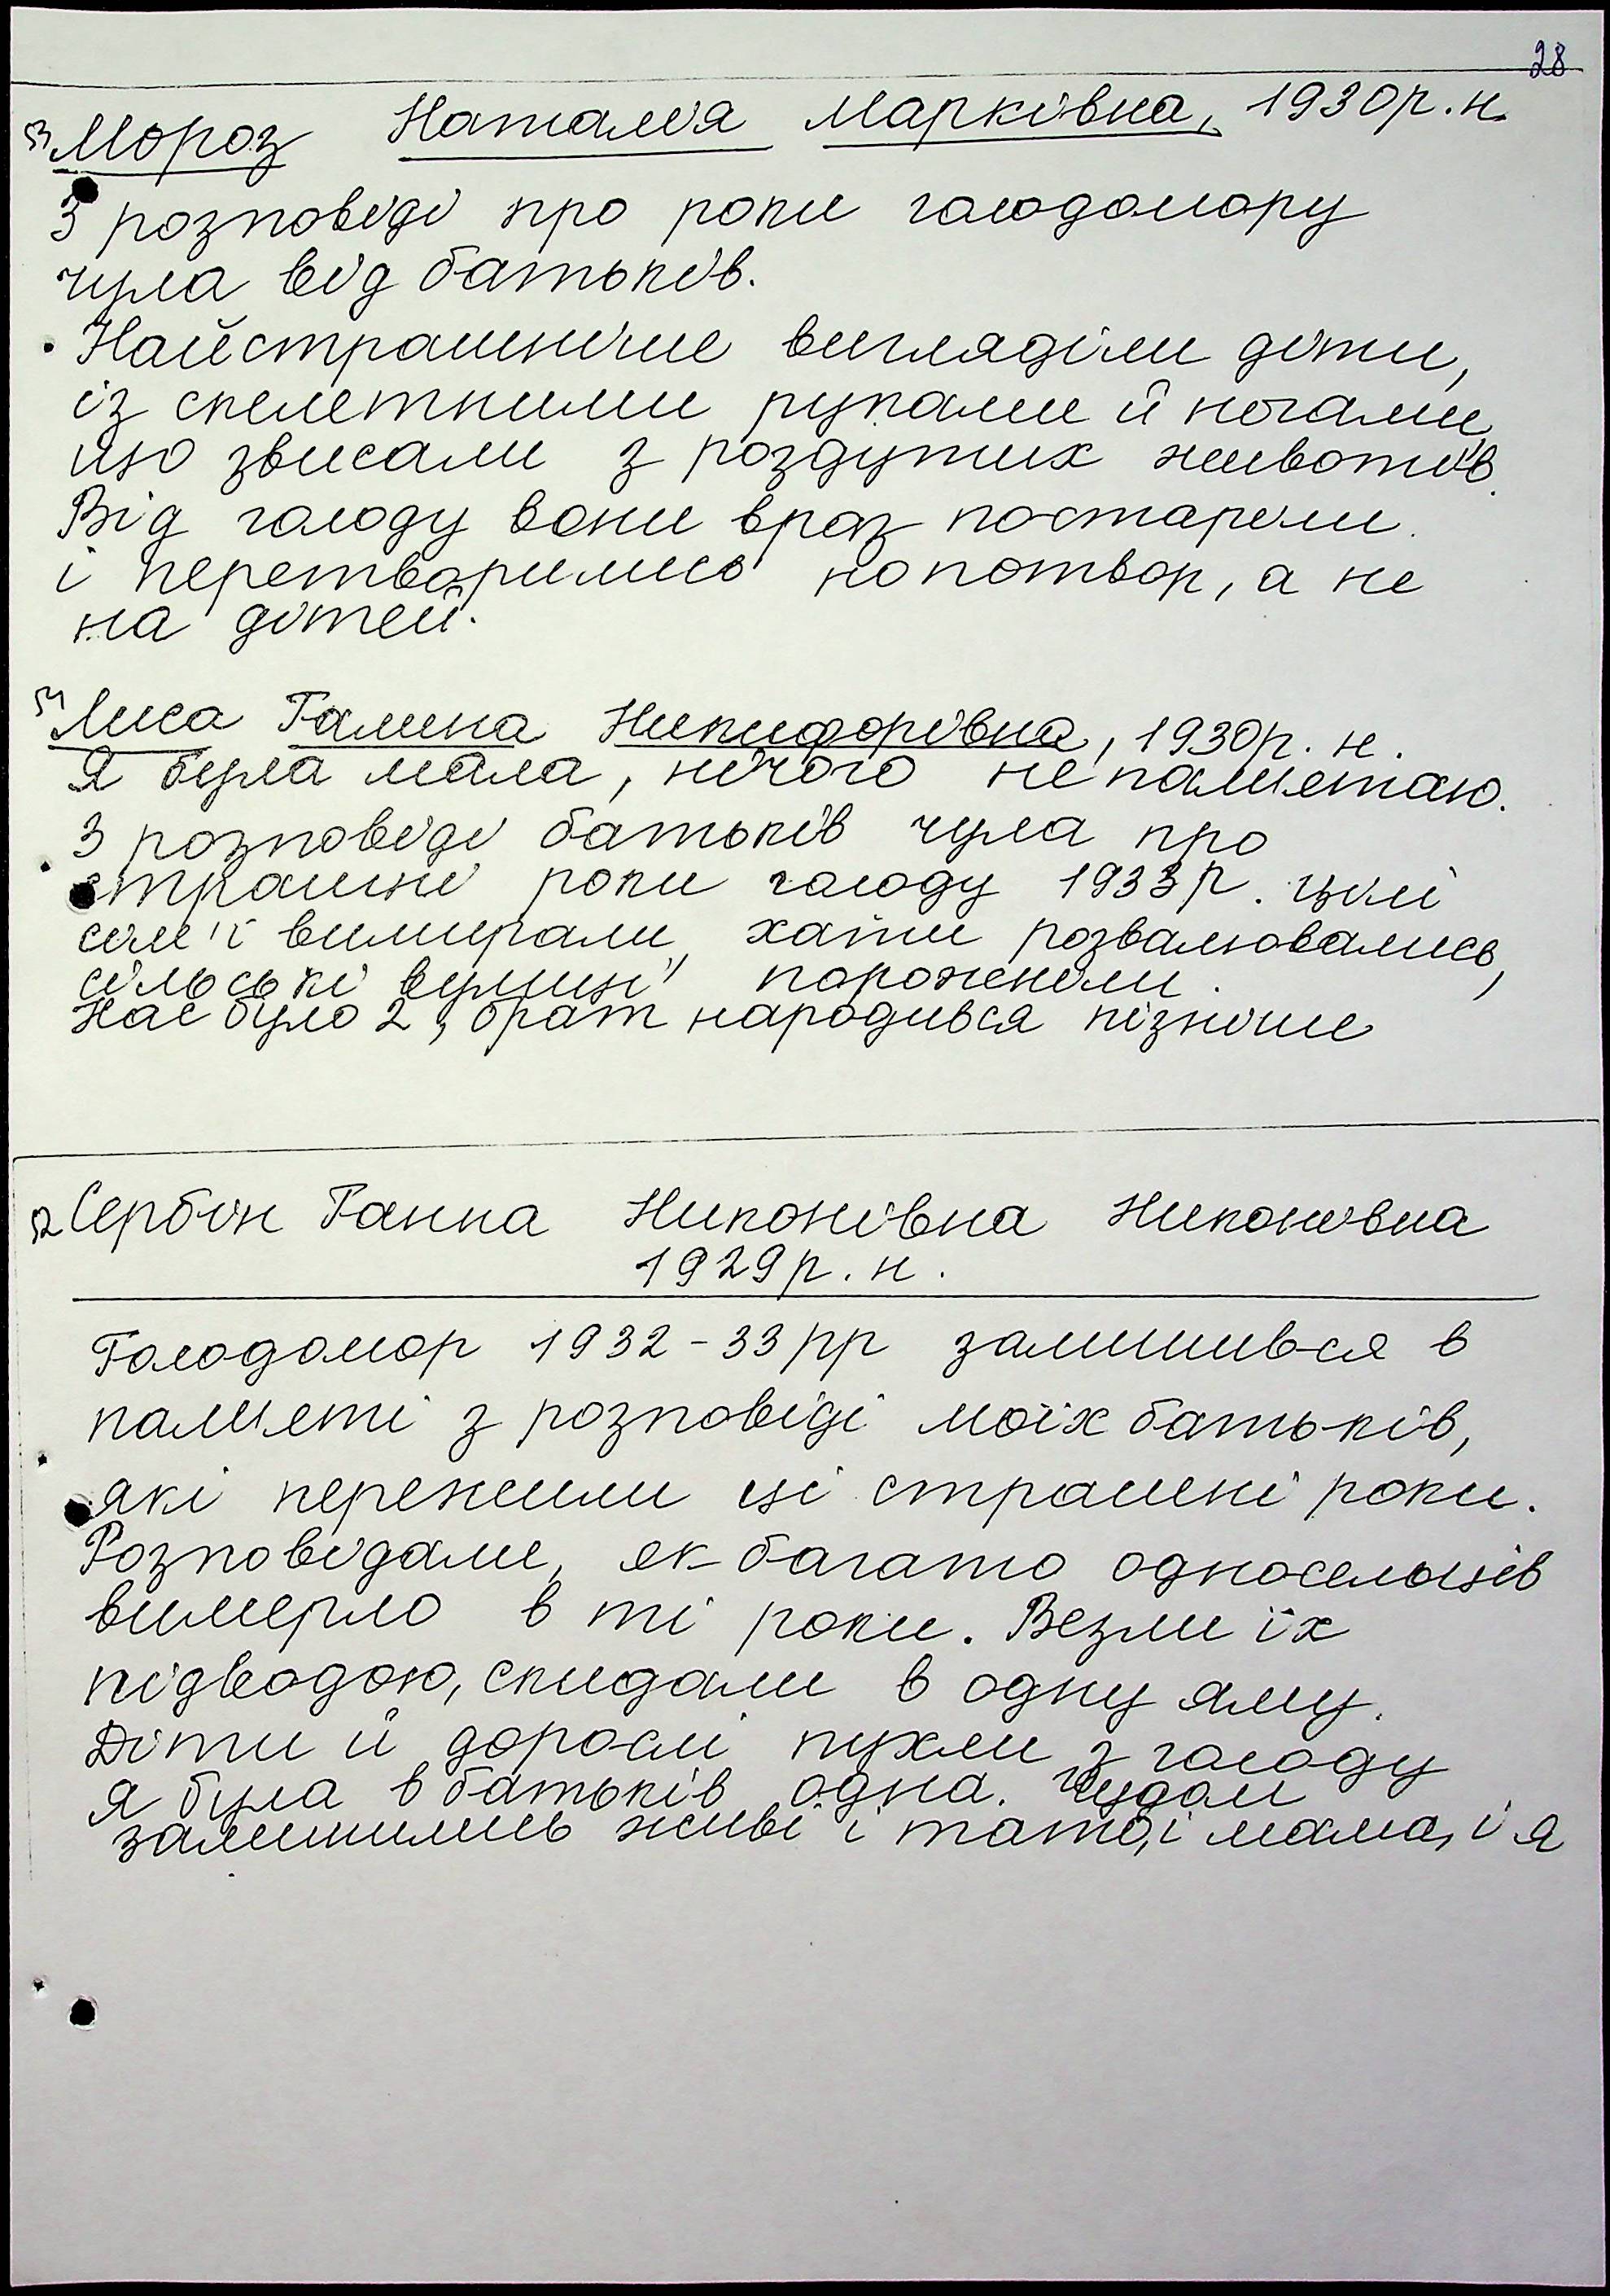 28
Мороз Наталія Марківна, 1930р. н.
З розповіді про роки голодомору
чула від батьків.
Найстрашніше вигляділи діти,
із скелетними руками й ногами,
що звисали з роздутих животів.
Від голоду вони враз постаріли
і перетворились на потвор, а не
на дітей.
Лиса Галина Никифорівна, 1930р. н.
Я була мала, нічого не памʼятаю.
З розповіді батьків чула про
страшні роки голоду 1933р. цілі
сімʼї вимирали, хати розвалювались,
сільські вулиці порожніли.
Нас було 2, брат народився пізніше
Сербін Ганна Никонівна Никонівна
1929р. н.
Голодомор 1932-33рр залишився в
памʼяті з розповіді моїх батьків,
які пережили ці страшні роки.
Розповідали, як багато односельців
вимерло в ті роки. Везли їх
підводою, скидали в одну яму.
Діти й дорослі пухли з голоду
я була в батьків одна. Чудом
залишились живі і тато, і мама, і я